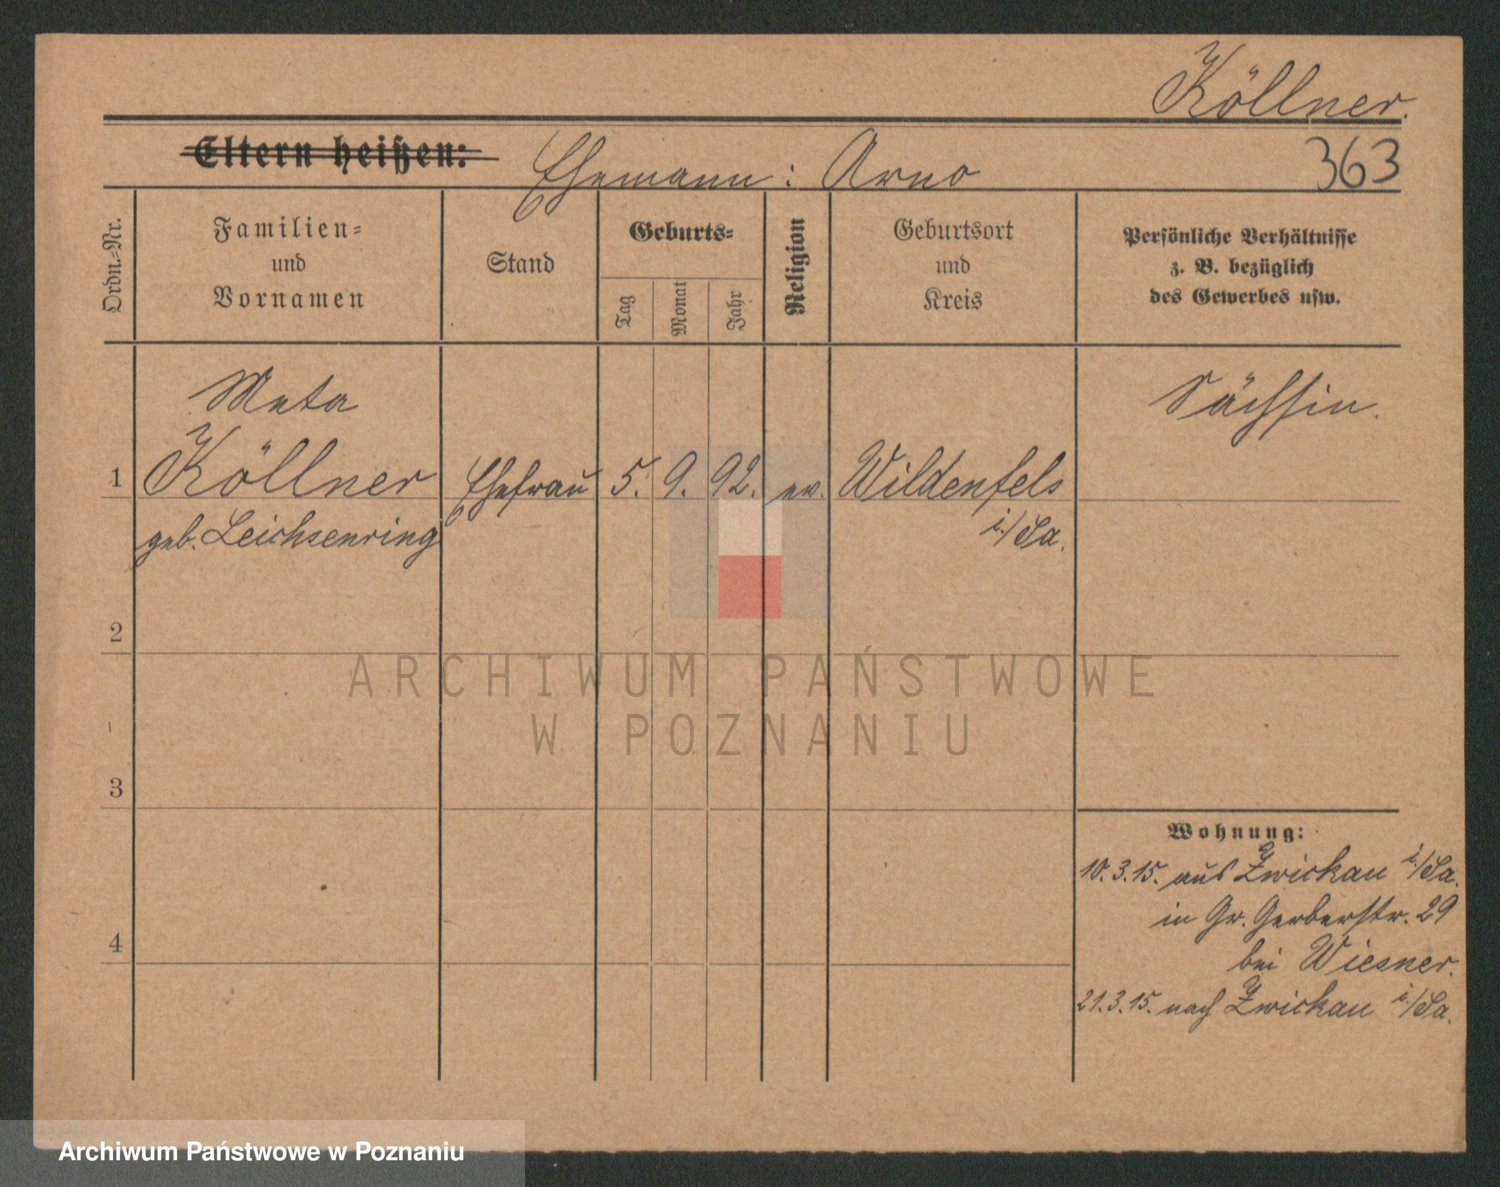 Köllner.
Eltern heißen: Ehemann: Arno 363
Ordn.-Nr.
Familien-
und
Vornamen
Stand
Geburts-
Tag
Monat
Jahr
Religion
Geburtsort
und
Kreis
Persönliche Verhältnisse
z. B. bezüglich
des Gewerbes usw.
Meta
Sächsin.
1 Köllner Ehefrau 5. 9. 92. ev. Wildenfels
geb. Leichsenring
i./Sa.
2
ARCHIWUM PAŃSTWOWE
W POZNANIU
3
Wohnung:
10.3.15. aus Zwickau i./Sa.
in Gr. Gerberstr. 29
4
bei Wiesner.
21.3.15. nach Zwickau i./Sa.
Archiwum Państwowe w Poznaniu